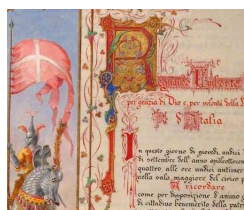 Regnando Umberto I
per grazia di Dio e per volontà della N
Re d'Italia
In questo giorno di giovedì, undici
di settembre dell'anno milleottocen
quattro, alle ore undici antimer
nella sala maggiore del civico p
A ricordare
come per disposizione d'animo
di cittadine benemerite della patri